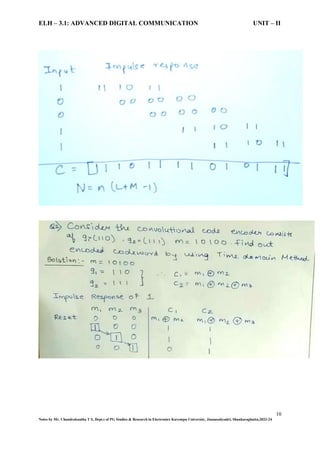 ELH – 3.1: ADVANCED DIGITAL COMMUNICATION UNIT – II
Input Impulse response
1 11 10 11
0 00 00 00
0 00 00 00
1 11 10 11
1 11 10 11
C = [11 10 11 11 01 01 11]
N = n (L+M-1)
Consider the convolutional code encoder consists
of g1=(110), g2=(111) m=10100. find out
encoded codeword by using Time domain Method
Solution:- m = 10100
g1 = 110 } ∴ C1 = m1 ⊕ m2
g2 = 111 C2 = m1 ⊕ m2 ⊕ m3
Impulse Response of 1
m1 m2 m3 C1 C2
Reset 0 0 0 m1 ⊕ m2 m1 ⊕ m2 ⊕ m3
1 0 0 1 1
0 1 0 1 1
0 0 1 0 1
10
Notes by Mr. Chandrakantha T S, Dept.s of PG Studies & Research in Electronics Kuvempu University, Jnanasahyadri, Shankaraghatta,2023-24